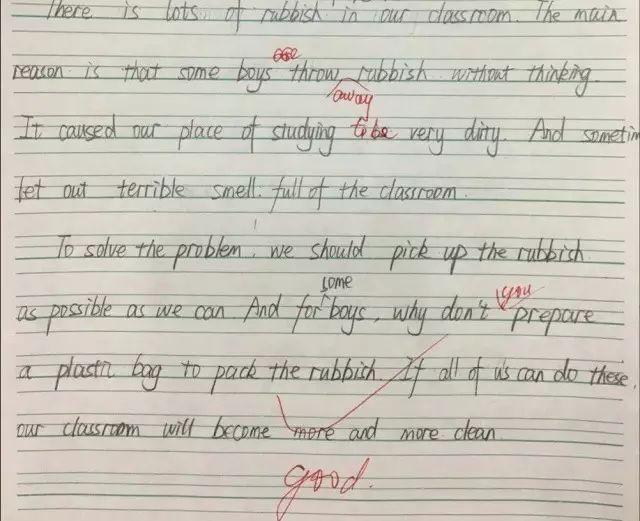 There is lots of rubbish in our classroom. The main
reason is that some boys throw rubbish without thinking.
away
It caused our place of studying to be very dirty. And sometim
let out terrible smell. full of the classroom.
To solve the problem, we should pick up the rubbish
some
you
as possible as we can. And for boys, why don't prepare
a plastic bag to pack the rubbish. If all of us can do these,
our classroom will become more and more clean.
good.